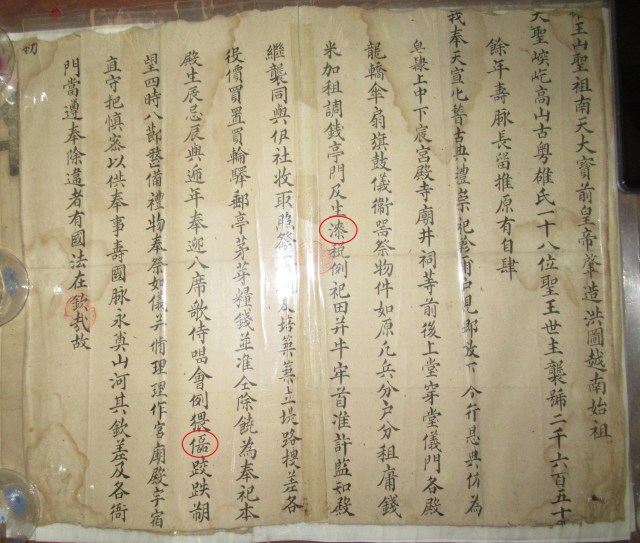 王山聖祖南天大寶前皇帝肇造洪圖越南始祖
天聖峻屹高山古粤雄氏一十八位聖王世主襲號二千六百五十
餘年壽脉長留推原有自肆
我奉天宣化普古典禮崇祀 放下 行恩典仍為
肆上中下宸宮殿寺廟井祠等前後上堂穿堂儀門各殿
龍轎傘扇旗鼓儀衛器祭物件如原凡兵分户分租庸錢
米加租調錢亭門及生漆稅例祀田并牛牢首准計監如殿
繼襲同與伊社收取 及培築築立堤路搜差各
役價買置買輪驛郵亭茅芽糧錢並准仝除饒為奉祀本
殿生辰忌辰與遞年奉迎八席歌侍唱會例猥僑跤跌朔
望四時八節整備禮物奉祭如儀并脩理理作宮廟殿宇宿
直守把慎密以供奉事壽國脉永奠山河其欽差及各衙
門當遵奉除違者有國法在欽哉故